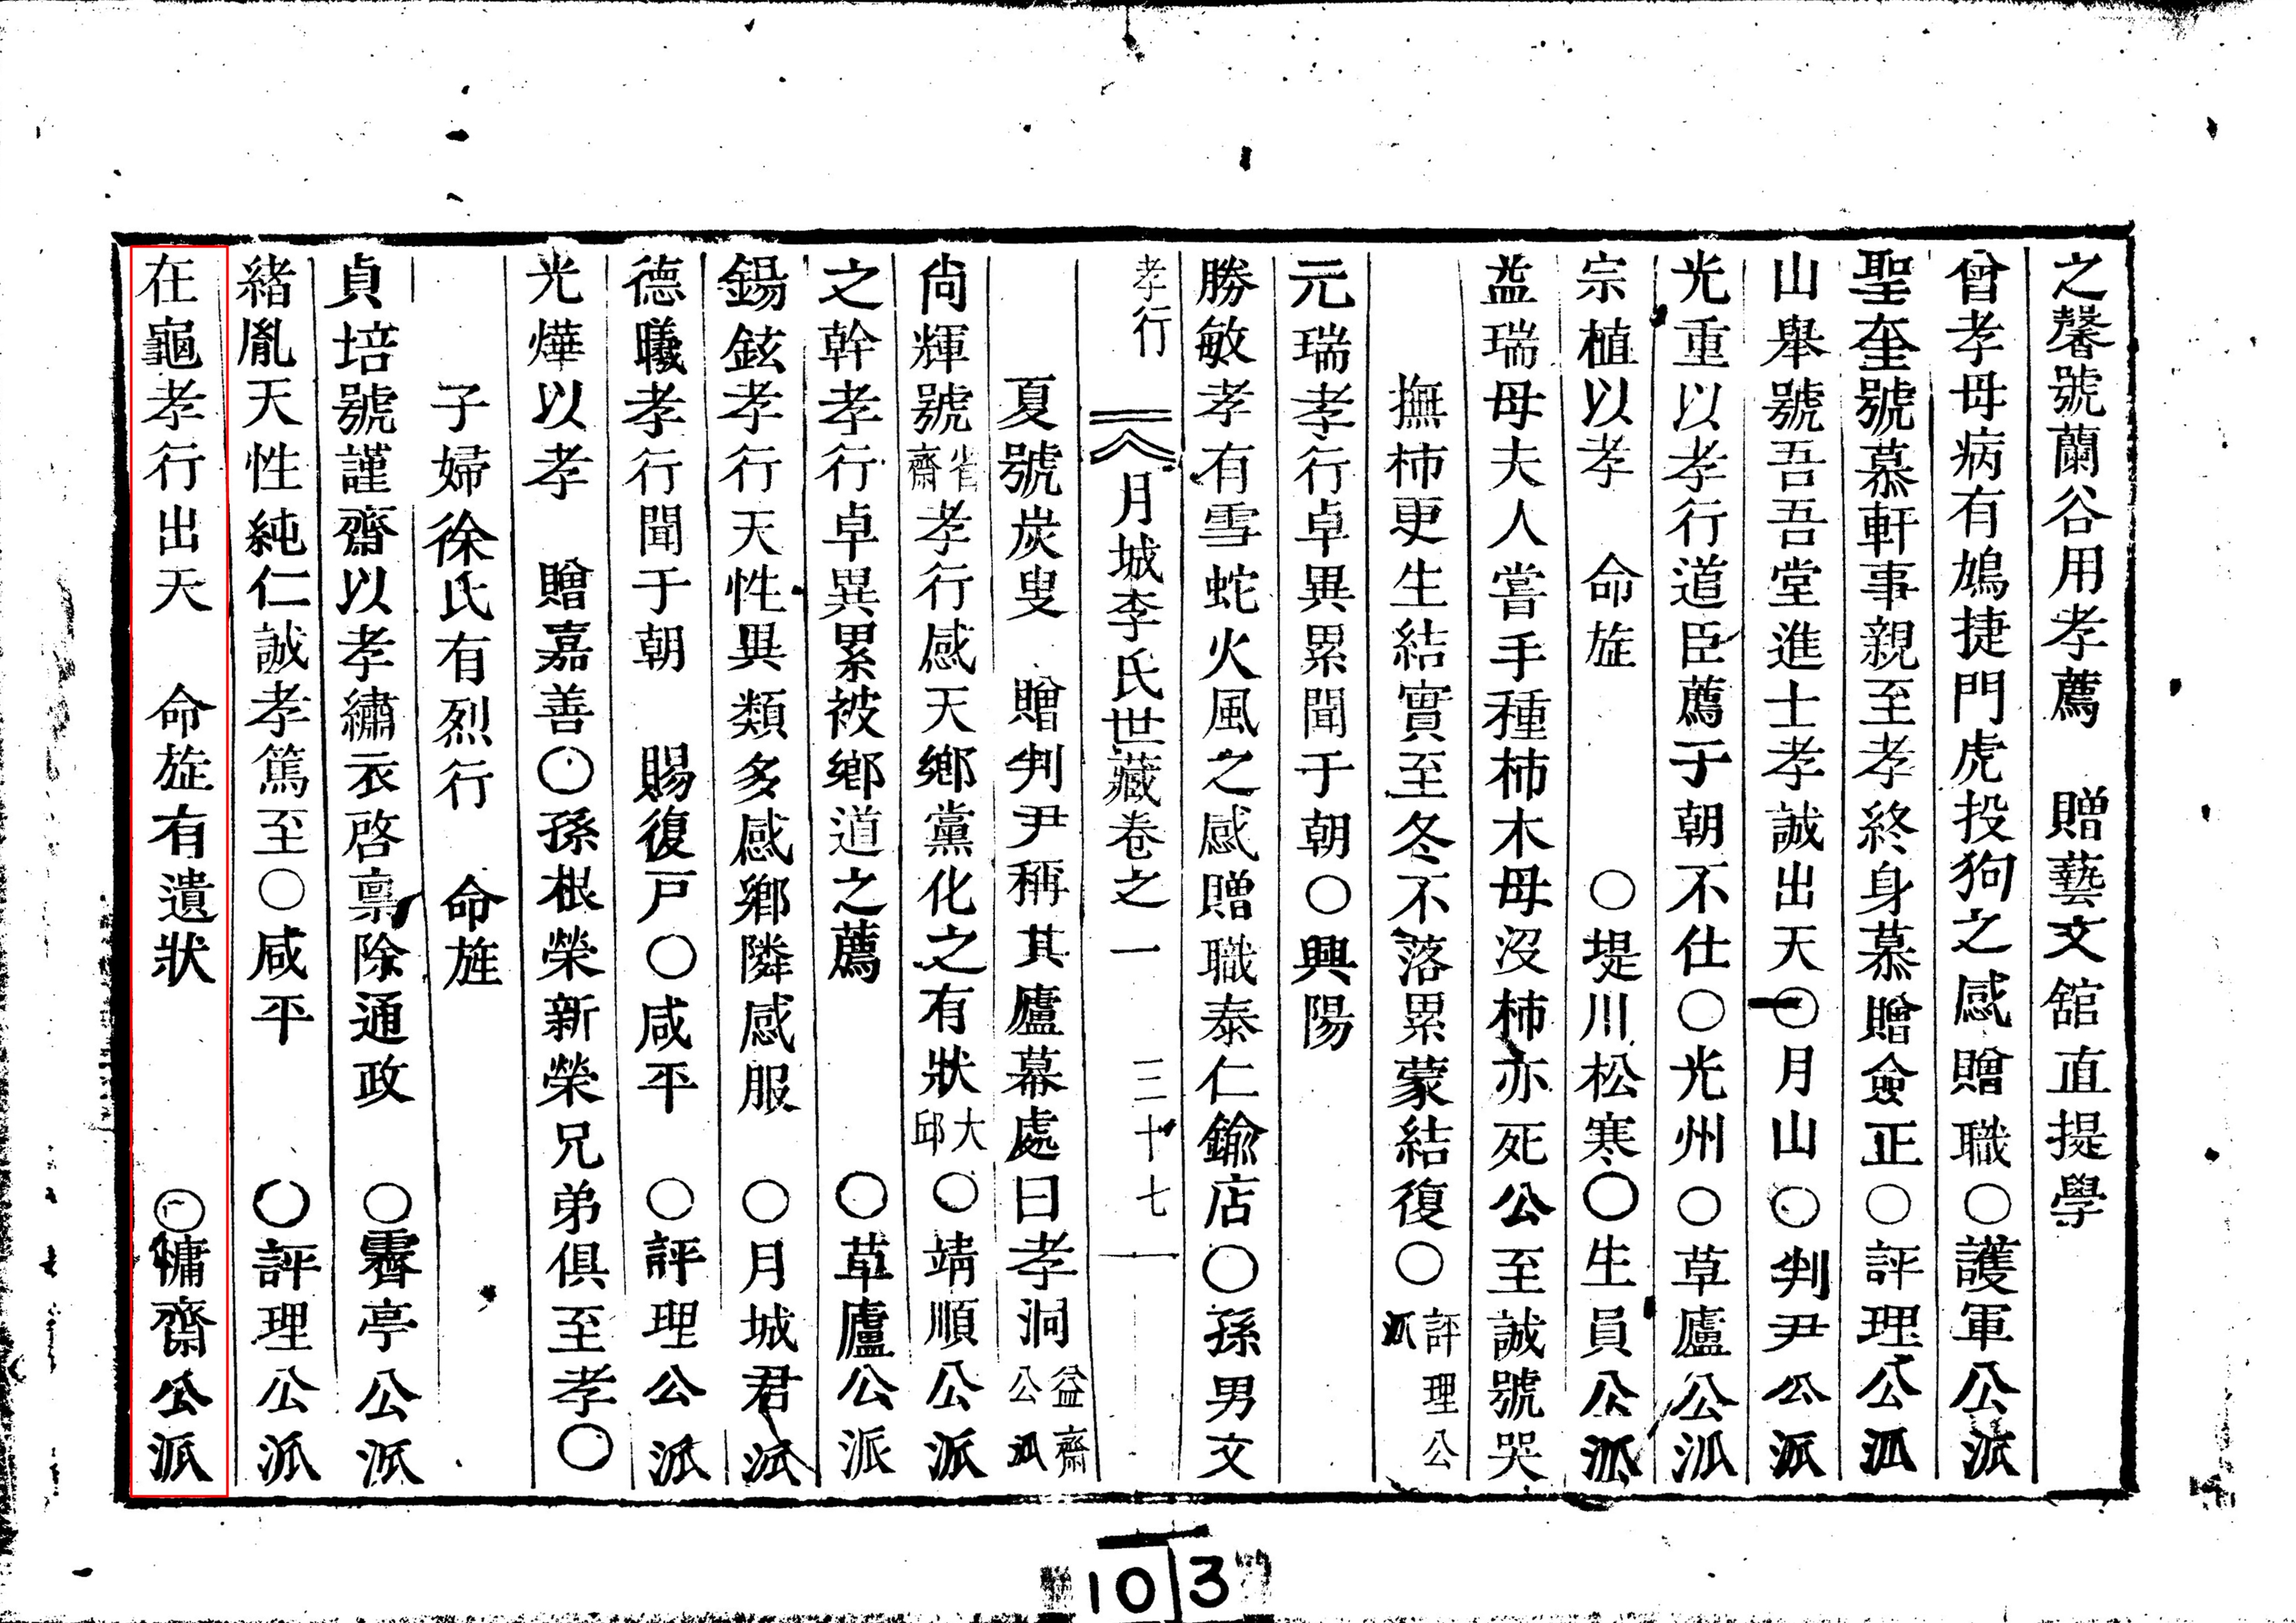 之馨號蘭谷用孝薦 贈藝文舘直提學
曾孝母病有鳩捷門虎投狗之感贈職○護軍公派
聖奎號慕軒事親至孝終身慕贈僉正○評理公派
山舉號吾吾堂進士孝誠出天○月山○判尹公派
光重以孝行道臣薦于朝不仕○光州○草廬公派
宗植以孝 命旌 ○堤川松寒○生員公派
益瑞母夫人嘗手種柿木母沒柿亦死公至誠號哭
撫柿更生結實至冬不落累蒙結復○評理公派
元瑞孝行卓異累聞于朝○興陽
勝敏孝有雪蛇火風之感贈職泰仁鍮店○孫男文
孝行 月城李氏世藏卷之一 三十七
夏號炭叟 贈判尹稱其廬幕處曰孝洞益齋公派
尙輝號省齋孝行感天鄉黨化之有狀大邱○靖順公派
之幹孝行卓異累被鄉道之薦 ○草廬公派
錫鉉孝行天性異類多感鄉隣感服 ○月城君派
德曦孝行聞于朝 賜復戶○咸平 ○評理公派
光燁以孝 贈嘉善○孫根榮新榮兄弟俱至孝○
子婦徐氏有烈行 命旌
貞培號謹齋以孝繡衣啓稟除通政 ○霽亭公派
緖胤天性純仁誠孝篤至○咸平 ○評理公派
在龜孝行出天 命旌有遺狀 ○慵齋公派
103